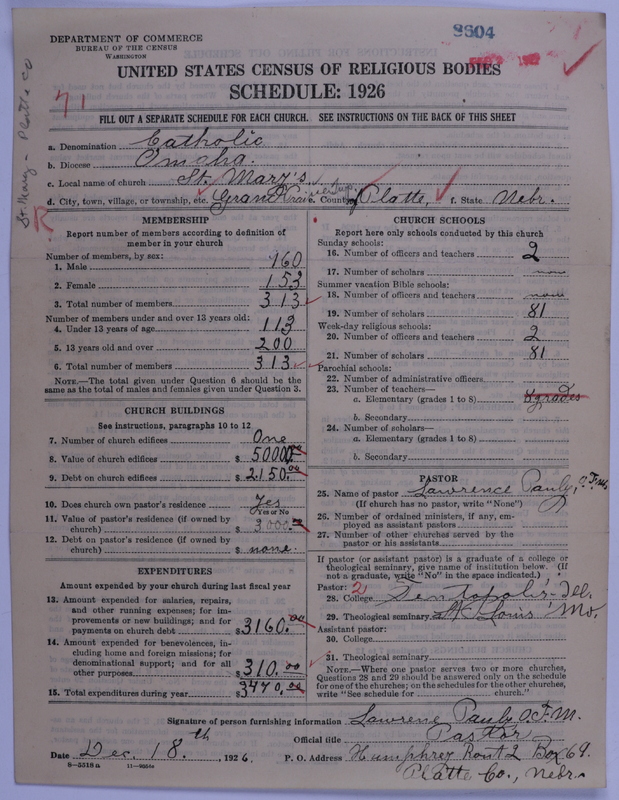 DEPARTMENT OF COMMERCE
BUREAU OF THE CENSUS
WASHINGTON
8604
UNITED STATES CENSUS OF RELIGIOUS BODIES
SCHEDULE: 1926
71
St. Mary - Platte Co
R
FILL OUT A SEPARATE SCHEDULE FOR EACH CHURCH. SEE INSTRUCTIONS ON THE BACK OF THIS SHEET
a. Denomination Catholic
b. Diocese Omaha.
c. Local name of church St. Mary's
d. City, town, village, or township, etc. Grand Prairie e. County Platte, f. State Nebr.
MEMBERSHIP
Report number of members according to definition of
member in your church
Number of members, by sex:
1. Male 160
2. Female 153
3. Total number of members 313
Number of members under and over 13 years old:
4. Under 13 years of age 113
5. 13 years old and over 200
6. Total number of members 313
NOTE.—The total given under Question 6 should be the
same as the total of males and females given under Question 3.
CHURCH BUILDINGS
See instructions, paragraphs 10 to 12
7. Number of church edifices One
8. Value of church edifices $ 50000.00
9. Debt on church edifices $ 2150.00
10. Does church own pastor's residence yes
Yes or No
11. Value of pastor's residence (if owned by
church) $ 3,000.00
12. Debt on pastor's residence (if owned by
church) $ none.
EXPENDITURES
Amount expended by your church during last fiscal year
13. Amount expended for salaries, repairs,
and other running expenses; for im-
provements or new buildings; and for
payments on church debt $ 3160.00
14. Amount expended for benevolences, in-
cluding home and foreign missions; for
denominational support; and for all
other purposes $ 310.00
15. Total expenditures during year $ 3470.00
CHURCH SCHOOLS
Report here only schools conducted by this church
Sunday schools:
16. Number of officers and teachers 2
17. Number of scholars
Summer vacation Bible schools:
18. Number of officers and teachers
19. Number of scholars 81
Week-day religious schools:
20. Number of officers and teachers 2
21. Number of scholars 81
Parochial schools:
22. Number of administrative officers
23. Number of teachers—
a. Elementary (grades 1 to 8) 8 grades
b. Secondary
24. Number of scholars—
a. Elementary (grades 1 to 8)
b. Secondary
PASTOR
25. Name of pastor Lawrence Pauly, O.F.M.
(If church has no pastor, write "None")
26. Number of ordained ministers, if any, em-
ployed as assistant pastors
27. Number of other churches served by the
pastor or his assistants
If pastor (or assistant pastor) is a graduate of a college or
theological seminary, give name of institution below. (If
not a graduate, write "No" in the space indicated.)
Pastor: 2
28. College Teutopolis - Ill.
29. Theological seminary St Louis Mo.
Assistant pastor:
30. College
31. Theological seminary
NOTE.—Where one pastor serves two or more churches,
Questions 28 and 29 should be answered only on the schedule
for one of the churches; on the schedules for the other churches,
write "See schedule for church."
Signature of person furnishing information Lawrence Pauly O.F.M.
Official title Pastor
Date Dec. 18th, 1926 P. O. Address Humphrey Rout 2 Box 69.
Platte Co., Nebr.
8—5518 a 11—9580a